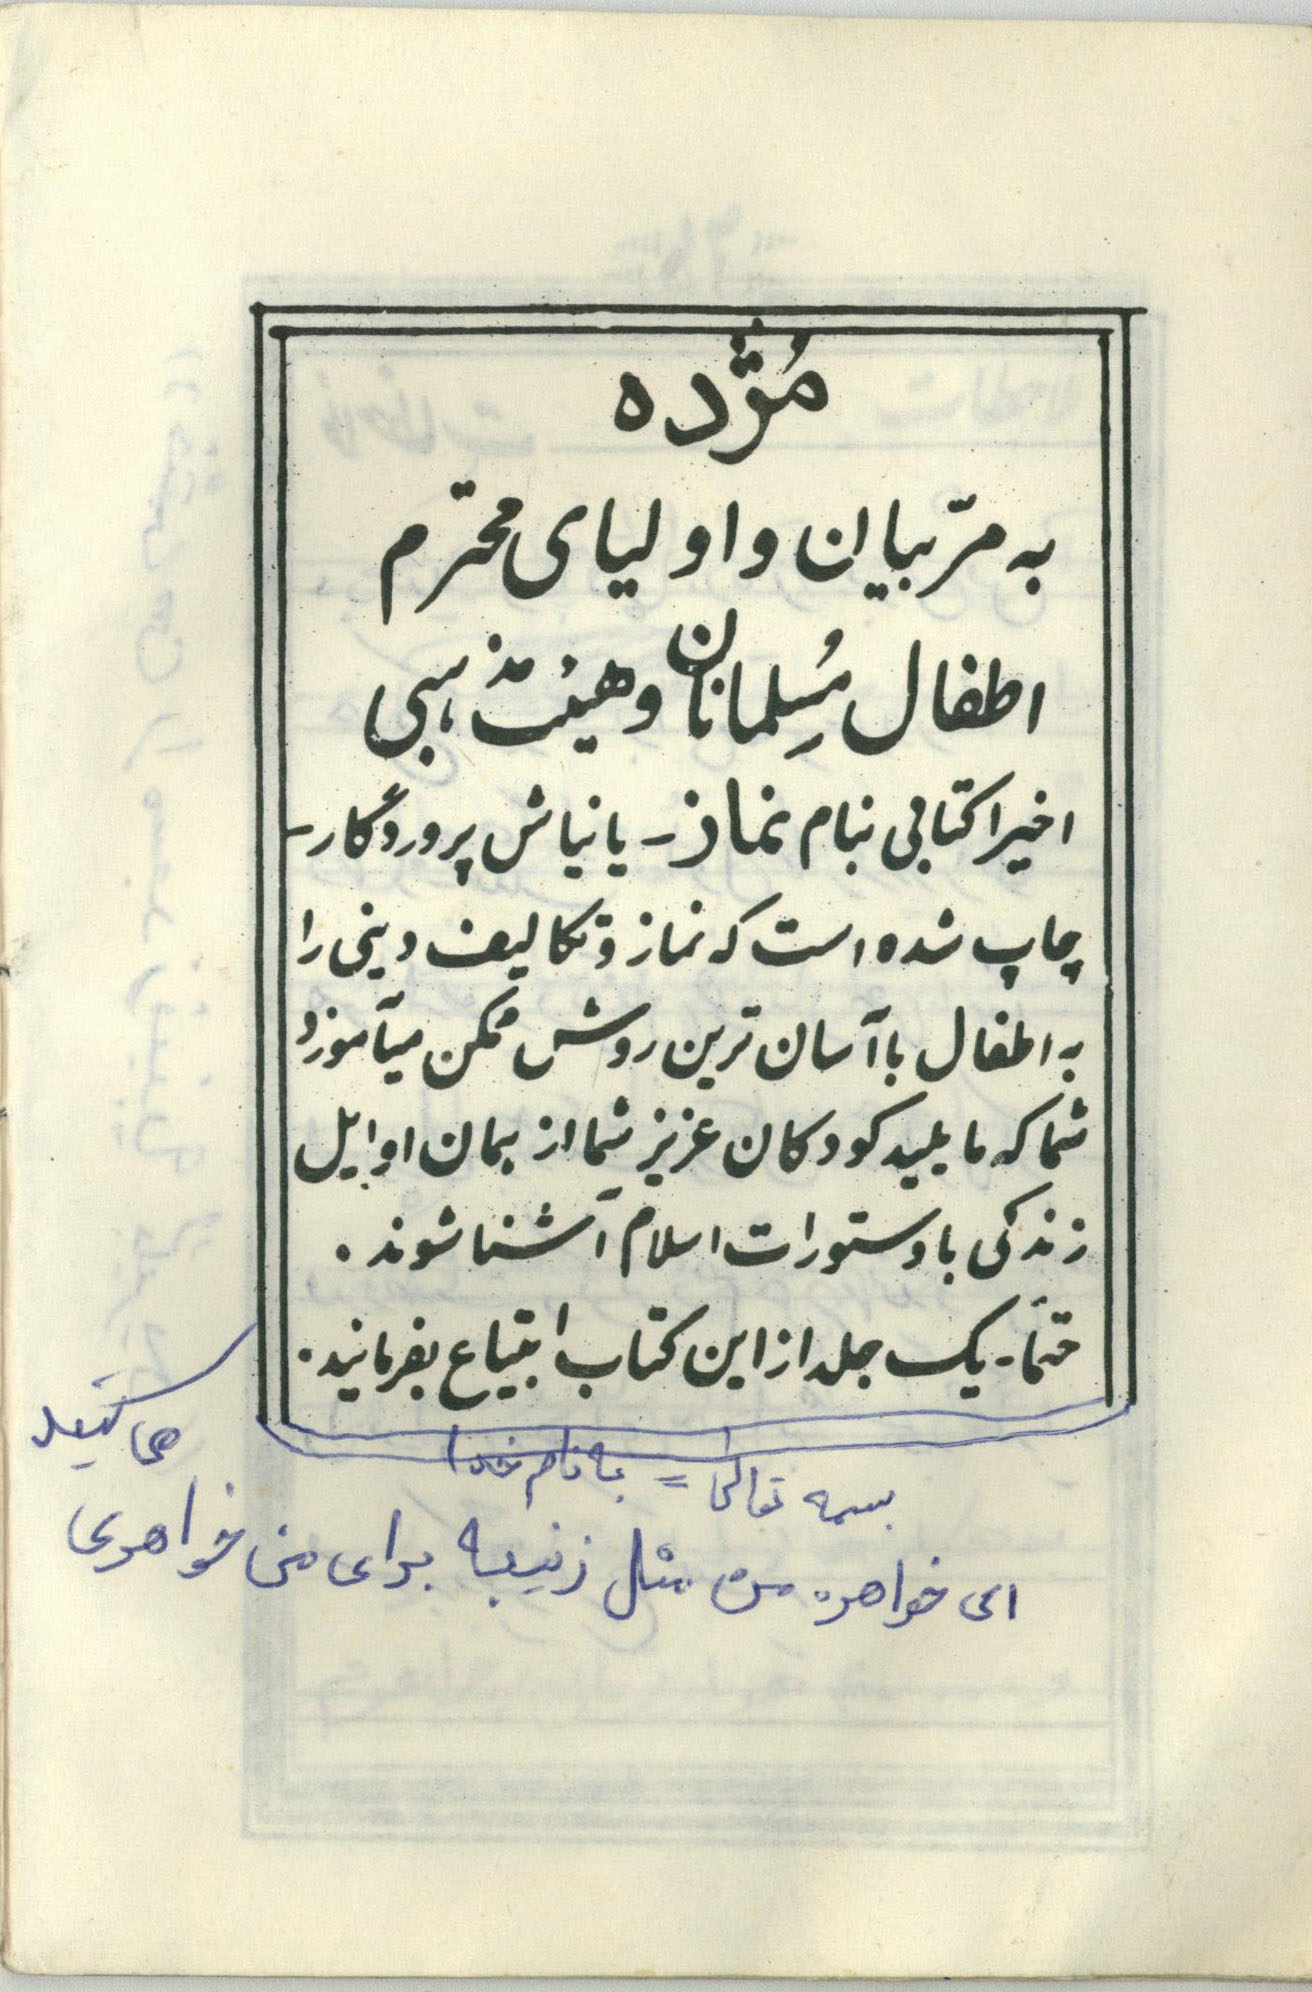 مُژده
به مرّبیان و اولیای محترم
اطفال مُسِلمانان و هیئت مذهبی
اخیرا کتابی بنام نماز - یا نیاش پروردگار -
چاپ شده است که نماز و تکالیف دینی را
به اطفال با آسان ترین روش ممکن میآموزد
شما که مایلید کودکان عزیز شما از همان اوایل
زندگی با دستورات اسلام آشنا شوند .
حتماً - یک جلد از این کتاب ابتیاع بفرمایند .
بسمه تعالی = به نام خدا
ای خواهره من مثل زینب برای من خواهری
می کنید